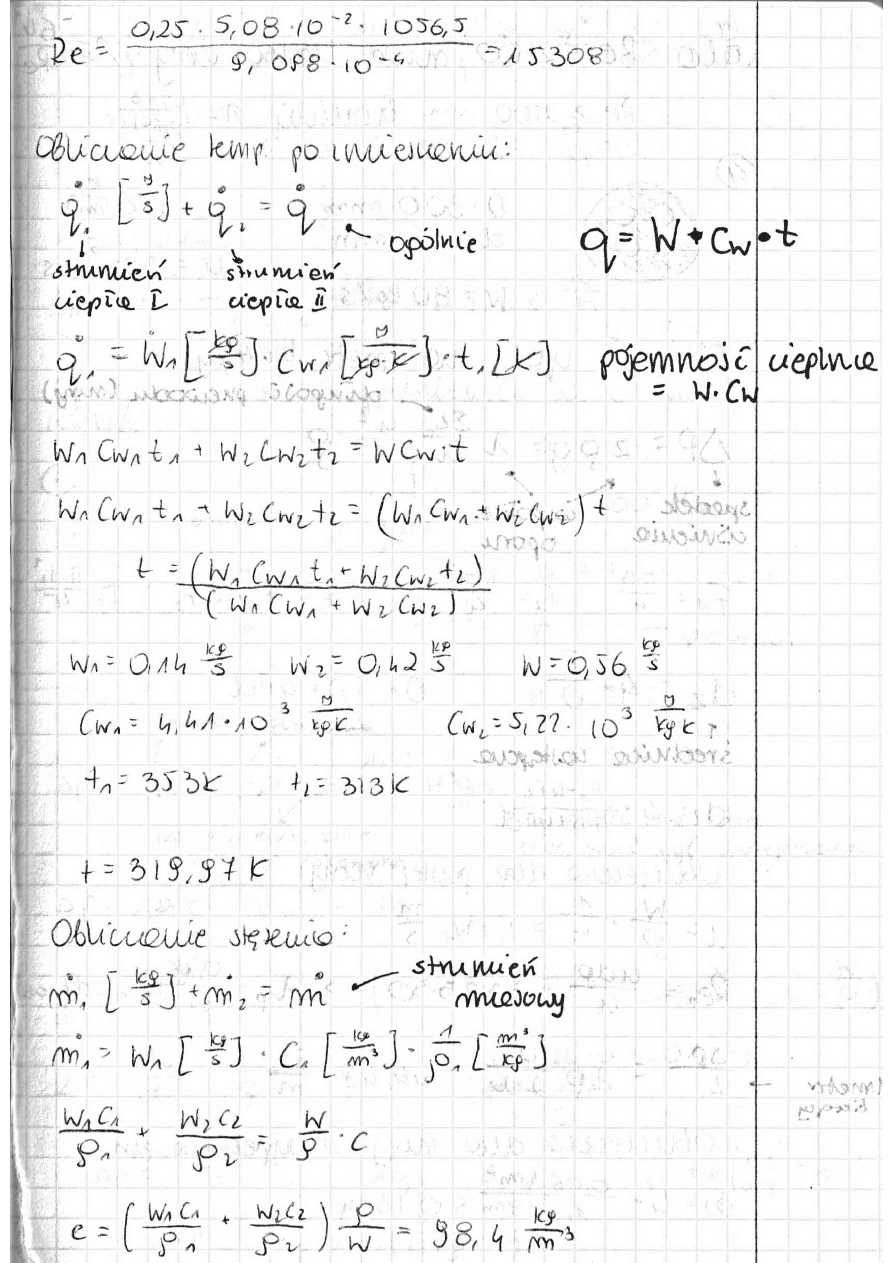 Re = 0,25 · 5,08 · 10⁻² · 1056,5 / 9,098 · 10⁻⁴ = 15308
Obliczanie temp. po zmieszaniu:
q̇₁ [J/s] + q̇₂ = q̇
ogólnie
q = W · Cw · t
strumień ciepła I
strumień ciepła II
q̇₁ = Ẇ₁ [kg/s] · Cw₁ [J/kg·K] · t₁ [K]
pojemność cieplna
= W · Cw
W₁ Cw₁ t₁ + W₂ Cw₂ t₂ = W Cw · t
W₁ Cw₁ t₁ + W₂ Cw₂ t₂ = (W₁ Cw₁ + W₂ Cw₂) t
t = (W₁ Cw₁ t₁ + W₂ Cw₂ t₂) / (W₁ Cw₁ + W₂ Cw₂)
W₁ = 0,14 kg/s W₂ = 0,42 kg/s W = 0,56 kg/s
Cw₁ = 4,41 · 10³ J/kgK Cw₂ = 5,22 · 10³ J/kgK
t₁ = 353K t₂ = 313K
t = 319,97 K
Obliczanie stężenia:
ṁ₁ [kg/s] + ṁ₂ = ṁ
strumień masowy
ṁ₁ = W₁ [kg/s] · C₁ [kg/m³] · 1/ρ₁ [m³/kg]
W₁C₁/ρ₁ + W₂C₂/ρ₂ = W/ρ · C
c = (W₁C₁/ρ₁ + W₂C₂/ρ₂) ρ/W = 98,4 kg/m³